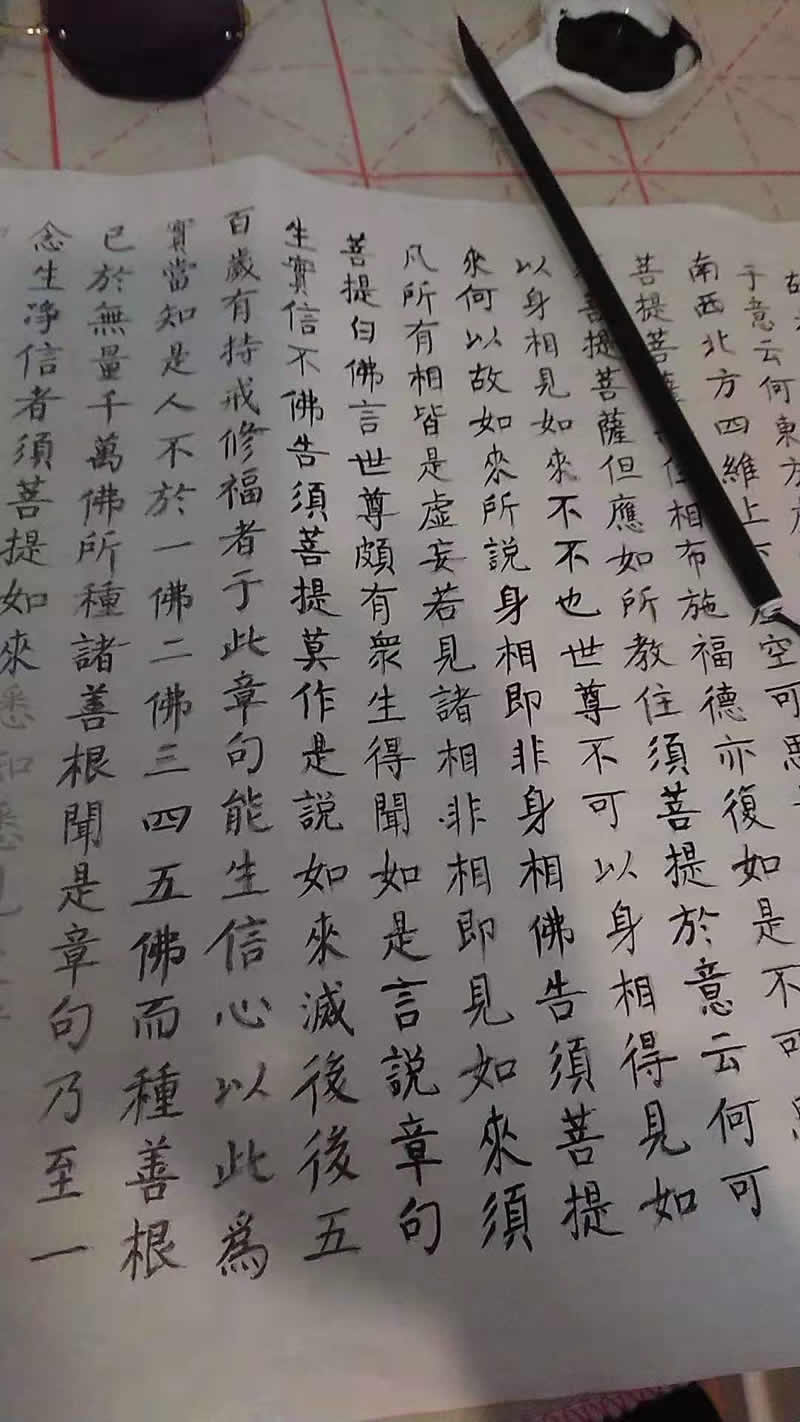 于意云何東方
南西北方四維上空可思
菩提菩薩住相布施福德亦復如是不可思
菩提菩薩但應如所教住須菩提於意云何可
以身相見如來不不也世尊不可以身相得見如
來何以故如來所說身相即非身相佛告須菩提
凡所有相皆是虛妄若見諸相非相即見如來須
菩提白佛言世尊頗有衆生得聞如是言說章句
生實信不佛告須菩提莫作是說如來滅後後五
百歲有持戒修福者于此章句能生信心以此爲
實當知是人不於一佛二佛三四五佛而種善根
已於無量千萬佛所種諸善根聞是章句乃至一
念生淨信者須菩提如來悉知悉見